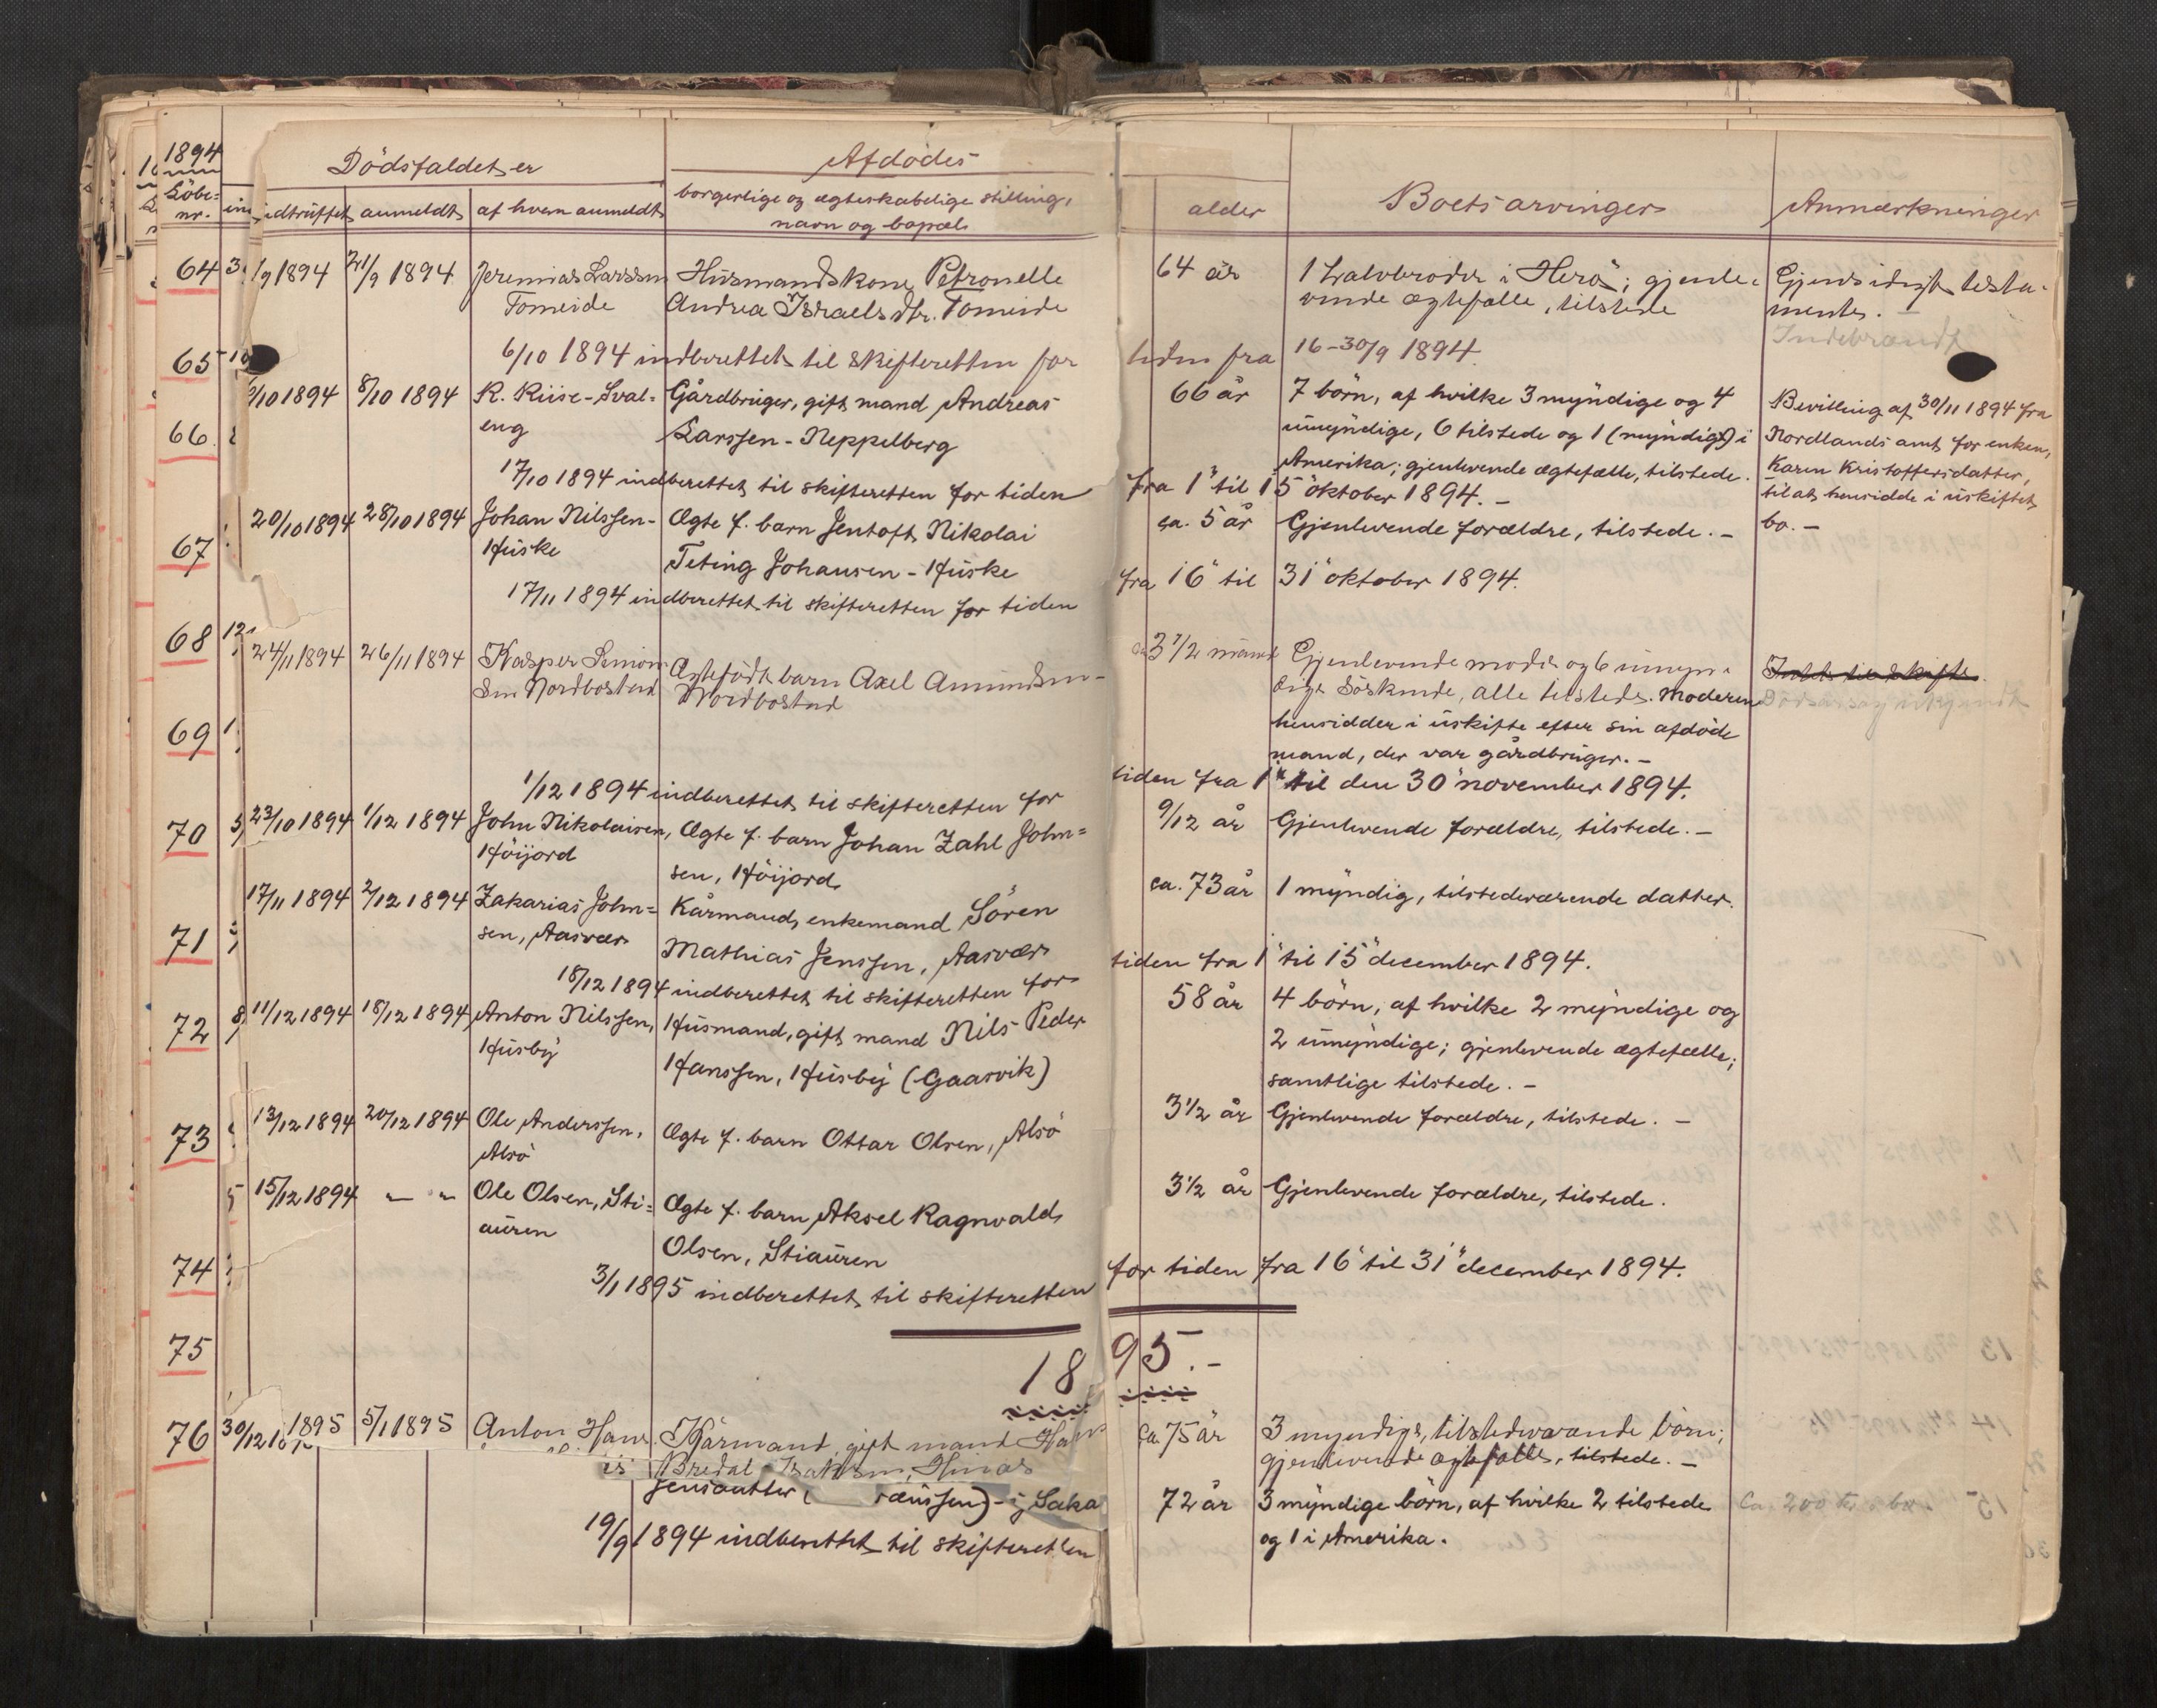 1894
Löbe-
nr.
Dödsfaldet er
Afdödes
indtruffet anmeldt af hvem anmeldt
borgerlige og ægteskabelige stilling,
navn og bopæl
alder
Boets arvinger
Anmærkninger
64
/9 1894 21/9 1894 Jeremias Larssen Husmandskone Petronelle
Tomeide Andrea Israelsdtr. Tomeide
64 år 1 halvbroder i Herö; gjenle-
vende ægtefælle, tilstede
Gjensidigt testa-
mente. -
Indebrændt
65
6/10 1894 indberettet til skifteretten for
tiden fra 16-30/9 1894.
/10 1894 8/10 1894 K. Riise-Sval= Gårdbruger, gift mand Andreas
eng Larssen-Neppelberg
66 år 7 börn, af hvilke 3 myndige og 4
umyndige, 6 tilstede og 1 (myndigt) i
Amerika; gjenlevende ægtefælle, tilstede.
Bevilling af 30/11 1894 fra
Nordlands amt for enken,
Karen Kristoffersdatter,
til at hensidde i uskiftet
bo. -
66
17/10 1894 indberettet til skifteretten for tiden
fra 1" til 15" oktober 1894. -
67
20/10 1894 28/10 1894 Johan Nilssen- Ægte f. barn Jentoft Nikolai
Huske Teting Johansen-Huske
ca. 5 år Gjenlevende forældre, tilstede. -
17/11 1894 indberettet til skifteretten for tiden
fra 16" til 31" oktober 1894.
68
24/11 1894 26/11 1894 Kasper Simon-
sen Nordbostad
Ægtefödt barn Axel Amundsen-
Nordbostad
3 1/2 måned Gjenlevende moder og 6 umyn-
dige söskende, alle tilstede. Moderen
hensidder i uskifte efter sin afdöde
mand, der var gårdbruger. -
69
1/12 1894 indberettet til skifteretten for
tiden fra 1" til den 30" november 1894.
70
23/10 1894 1/12 1894 John Nikolaisen, Ægte f. barn Johan Zahl John=
Höijord sen, Höijord
9/12 år Gjenlevende forældre, tilstede. -
17/11 1894 2/12 1894 Zakarias John= Kårmand, enkemand Sören
sen, Aasvær Mathias Jenssen, Aasvær
ca. 73 år 1 myndig, tilstedeværende datter.
71
18/12 1894 indberettet til skifteretten for
tiden fra 1" til 15" december 1894.
72
11/12 1894 18/12 1894 Anton Nilssen, Husmand, gift mand Nils Peder
Husby Hanssen, Husby (Gaasvik)
58 år 4 börn, af hvilke 2 myndige og
2 umyndige; gjenlevende ægtefælle;
samtlige tilstede. -
73
13/12 1894 20/12 1894 Ole Anderssen, Ægte f. barn Ottar Olsen, Alsö
Alsö
3 1/2 år Gjenlevende forældre, tilstede. -
15/12 1894 - " - Ole Olsen, Sti= Ægte f. barn Aksel Ragnvald
auren Olsen, Stiauren
3 1/2 år Gjenlevende forældre, tilstede.
74
3/1 1895 indberettet til skifteretten
for tiden fra 16" til 31" december 1894.
75
1895. -
76
30/12 1895 5/1 1895 Anton Hans Kårmand, gift mand
Bredal
ca. 75 år 3 myndige, tilstedeværende börn;
gjenlevende ægtefælle, tilstede. -
72 år 3 myndige börn, af hvilke 2 tilstede
og 1 i Amerika.
19/9 1894 indberettet til skifteretten